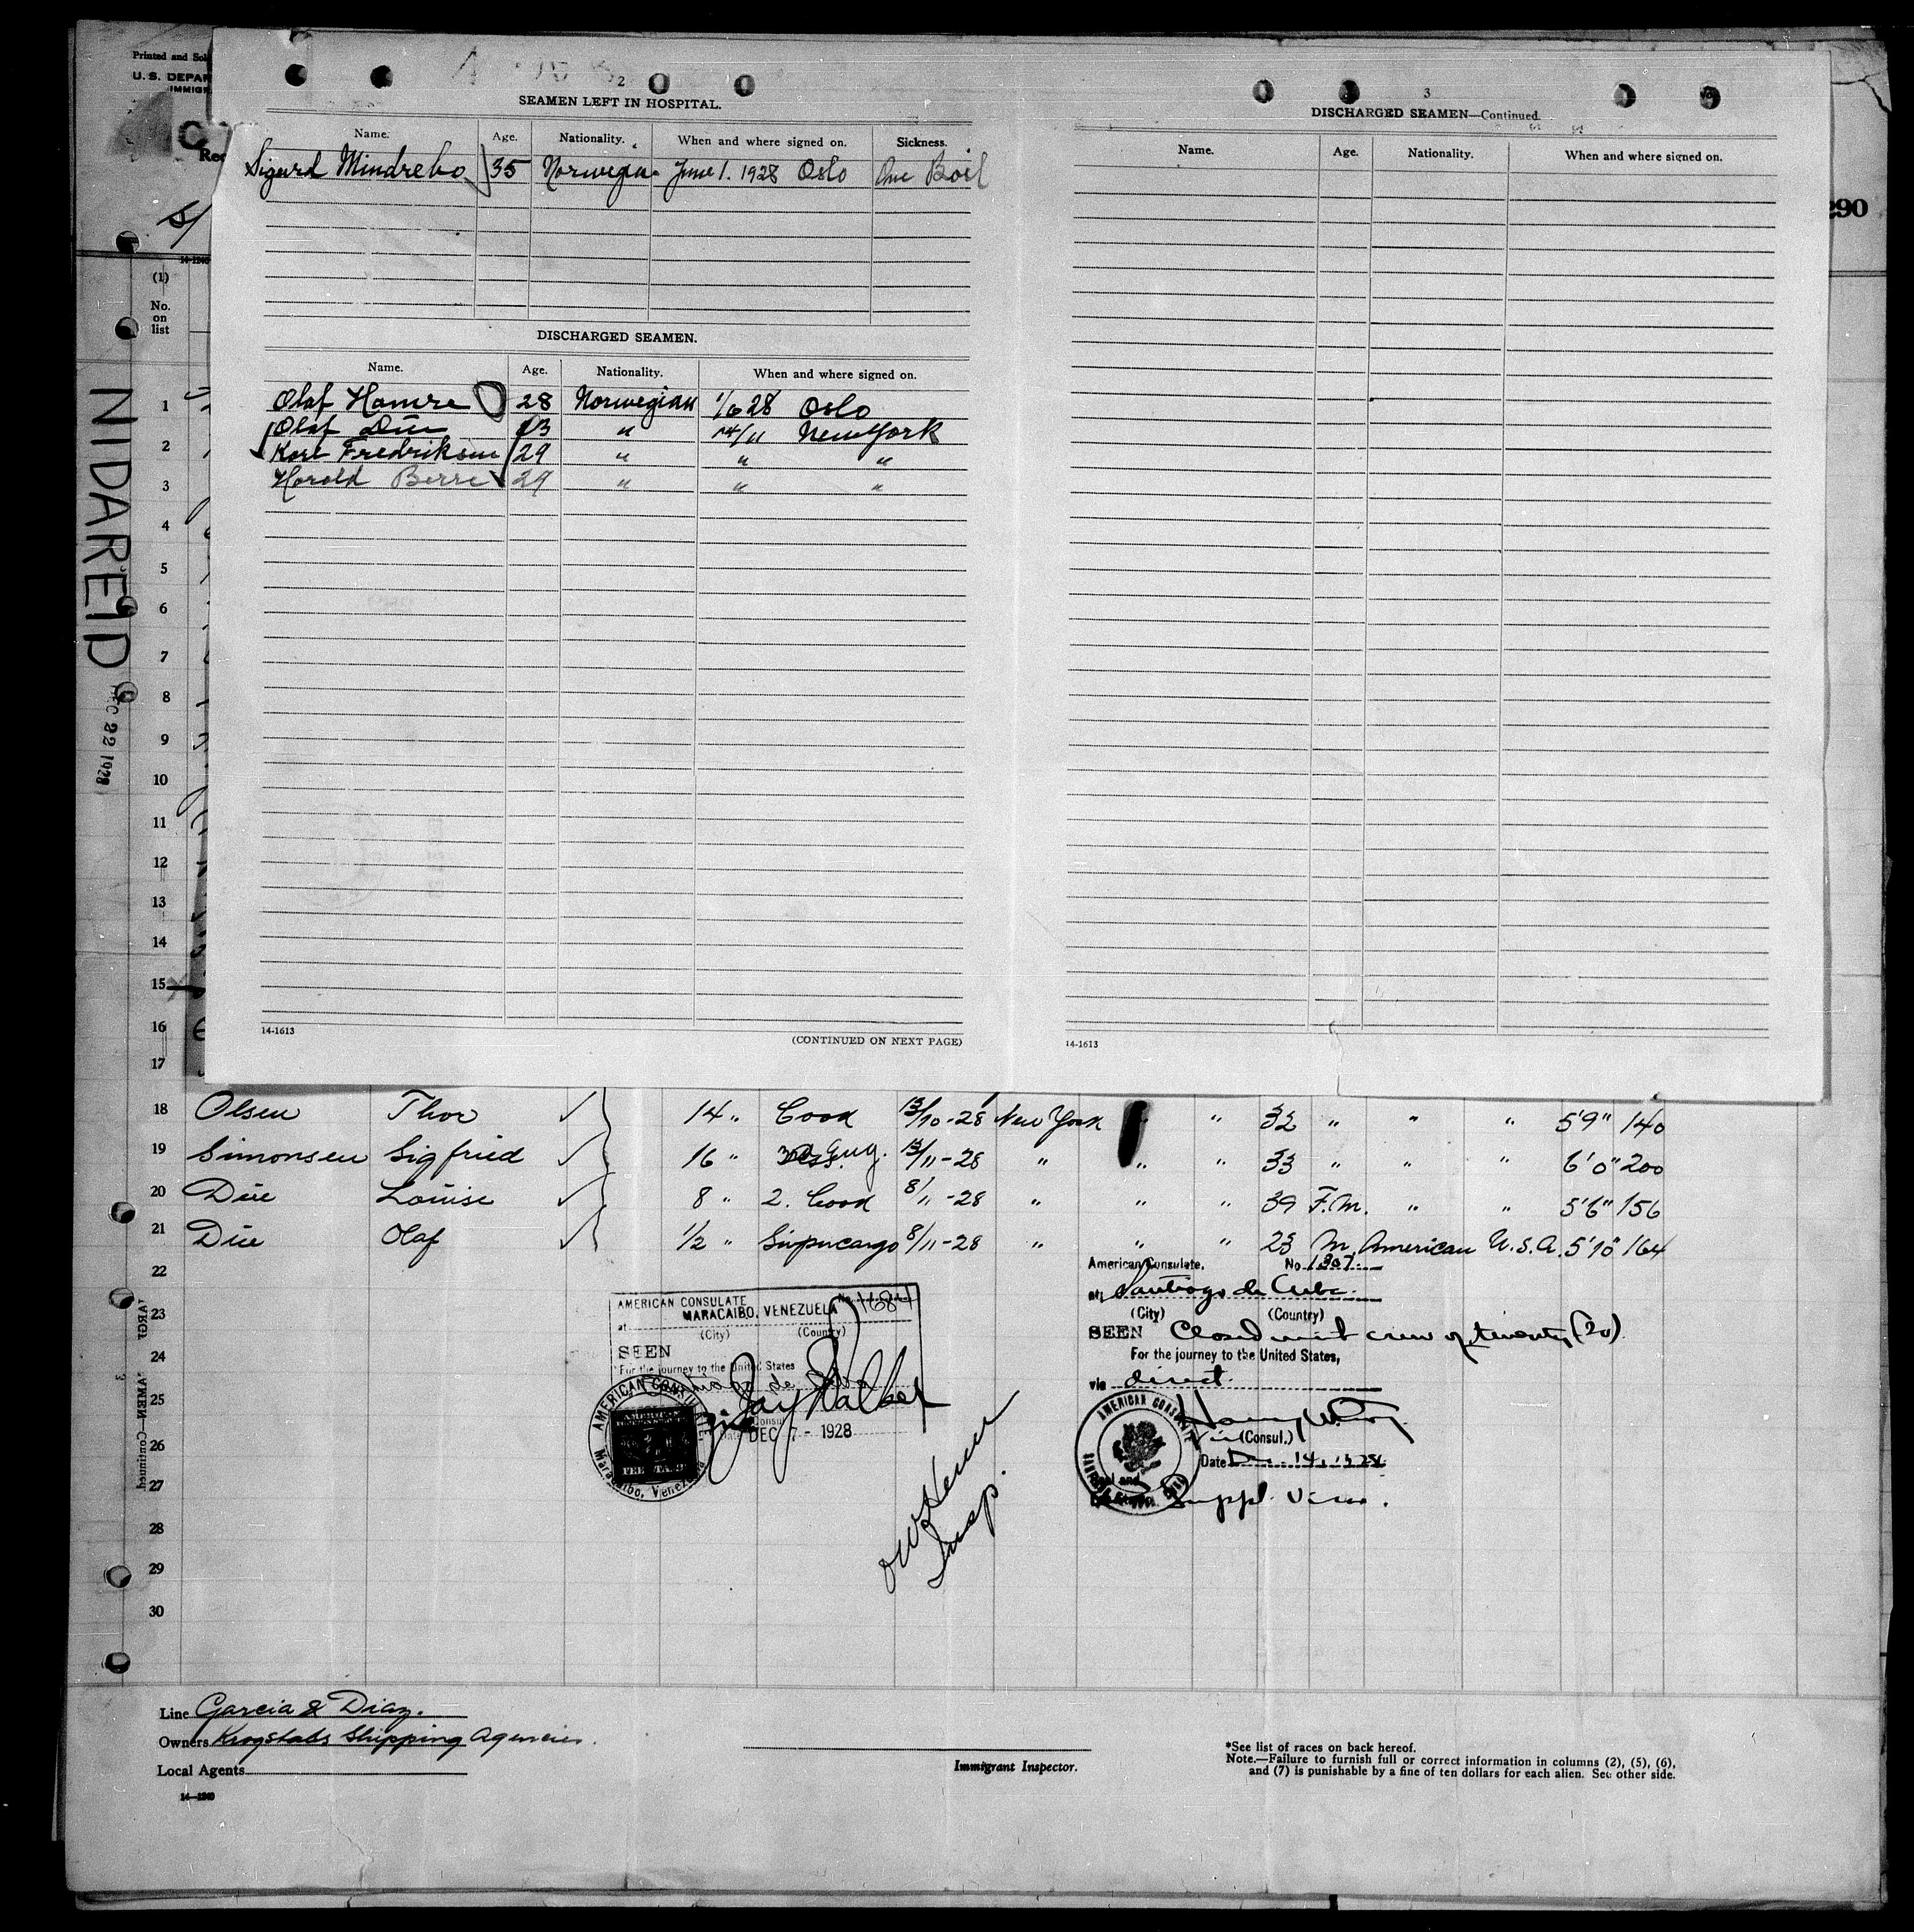 Printed and Sol
U. S. DEPAR
IMMIGR
2
SEAMEN LEFT IN HOSPITAL.
Name. Age. Nationality. When and where signed on. Sickness.
Sigurd Mindrebo 35 Norwegian June 1. 1928 Oslo One Boil
DISCHARGED SEAMEN.
Name. Age. Nationality. When and where signed on.
Olaf Hamre 28 Norwegian 1/6 28 Oslo
Olaf Düe 23 " 14/11 New York
Kare Fredriksen 29 " " "
Harold Berre 29 " " "
14-1613
(CONTINUED ON NEXT PAGE)
3
DISCHARGED SEAMEN—Continued.
Name. Age. Nationality. When and where signed on.
14-1613
290
(1)
No.
on
list
NIDAREID
DEC 22 1928
1
2
3
4
5
6
7
8
9
10
11
12
13
14
15
16
17
18 Olsen Thor 14 " Cook 13/10-28 New York " " 32 " " " 5'9" 140
19 Simonsen Sigfried 16 " Eng. 13/11-28 " " " 33 " " " 6'0" 200
20 Düe Louise 8 " 2. Cook 8/11-28 " " " 39 F.M. " " 5'6" 156
21 Düe Olaf 1/2 " Supercargo 8/11-28 " " " 23 M. American U.S.A. 5'10" 164
22
23
24
25
26
27
28
29
30
AMERICAN CONSULATE No. 1684
at MARACAIBO, VENEZUELA
(City) (Country)
SEEN
For the journey to the United States
Jay Walker
Consul
Date DEC 7 - 1928
AMERICAN CONSULATE
Maracaibo, Venezuela
American Consulate. No. 1307
at Santiago de Cuba
(City) (Country)
SEEN Closed with crew of twenty (20)
For the journey to the United States,
via direct
(Consul.)
Date Dec. 14, 1928
Suppl. Visa.
AMERICAN CONSULATE
Insp.
Line Garcia & Diaz.
Owners Krogstads Shipping Agencies.
Local Agents
14—1240
Immigrant Inspector.
*See list of races on back hereof.
Note.—Failure to furnish full or correct information in columns (2), (5), (6),
and (7) is punishable by a fine of ten dollars for each alien. See other side.